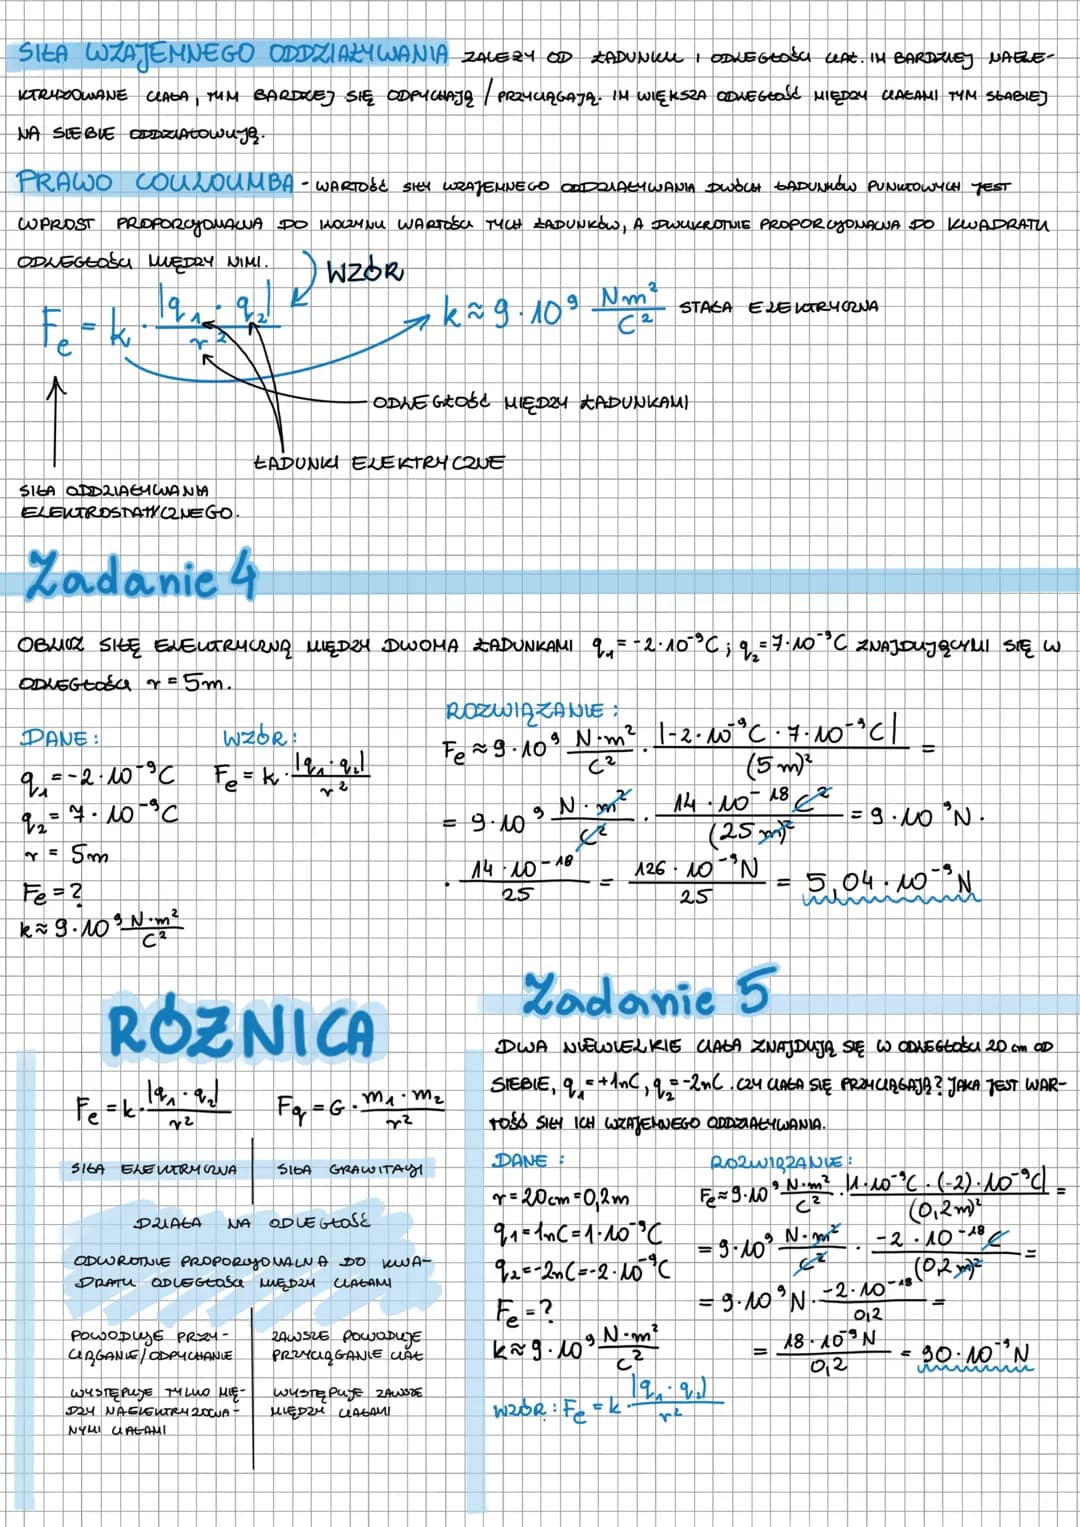 SIŁA WZAJEMNEGO ODDZIAŁYWANIA ZALEŻY OD ŁADUNKU I ODLEGŁOŚCI CIAŁ. IM BARDZIEJ NAELE-
KTRYZOWANE CIAŁA, TYM BARDZIEJ SIĘ ODPYCHAJĄ / PRZYCIĄGAJĄ. IM WIĘKSZA ODLEGŁOŚĆ MIĘDZY CIAŁAMI TYM SŁABIEJ
NA SIEBIE ODDZIAŁOWUJĄ.
PRAWO COULOUMBA - WARTOŚĆ SIŁY WZAJEMNEGO ODDZIAŁYWANIA DWÓCH ŁADUNKÓW PUNKTOWYCH JEST
WPROST PROPORCJONALNA DO ILOCZYNU WARTOŚCI TYCH ŁADUNKÓW, A DWUKROTNIE PROPORCJONALNA DO KWADRATU
ODLEGŁOŚCI MIĘDZY NIMI.
WZÓR
Fe = k · |q₁ · q₂| / r²
k ≈ 9 · 10⁹ Nm² / C² STAŁA ELEKTRYCZNA
ODLEGŁOŚĆ MIĘDZY ŁADUNKAMI
ŁADUNKI ELEKTRYCZNE
SIŁA ODDZIAŁYWANIA
ELEKTROSTATYCZNEGO.
Zadanie 4
OBLICZ SIŁĘ ELEKTRYCZNĄ MIĘDZY DWOMA ŁADUNKAMI q₁ = -2·10⁻⁹C ; q₂ = 7·10⁻⁹C ZNAJDUJĄCYMI SIĘ W
ODLEGŁOŚCI r = 5m.
DANE:
q₁ = -2·10⁻⁹C
q₂ = 7·10⁻⁹C
r = 5m
Fe = ?
k ≈ 9·10⁹ N·m² / C²
WZÓR:
Fe = k · |q₁ · q₂| / r²
ROZWIĄZANIE:
Fe ≈ 9·10⁹ N·m² / C² · |-2·10⁻⁹C · 7·10⁻⁹C| / (5m)² =
= 9·10⁹ N·m² / C² · 14·10⁻¹⁸ C² / (25 m)² = 9·10⁹N·
· 14·10⁻¹⁸ / 25 = 126·10⁻⁹N / 25 = 5,04·10⁻⁹N
RÓŻNICA
Fe = k · |q₁ · q₂| / r²
Fg = G · m₁ · m₂ / r²
SIŁA ELEKTRYCZNA
SIŁA GRAWITACJI
DZIAŁA NA ODLEGŁOŚĆ
ODWROTNIE PROPORCJONALNA DO KWA-
DRATU ODLEGŁOŚCI MIĘDZY CIAŁAMI
POWODUJE PRZY-
CIĄGANIE/ODPYCHANIE
ZAWSZE POWODUJE
PRZYCIĄGANIE CIAŁ
WYSTĘPUJE TYLKO MIĘ-
DZY NAELEKTRYZOWA-
NYMI CIAŁAMI
WYSTĘPUJE ZAWSZE
MIĘDZY CIAŁAMI
Zadanie 5
DWA NIEWIELKIE CIAŁA ZNAJDUJĄ SIĘ W ODLEGŁOŚCI 20 cm OD
SIEBIE, q₁ = +1nC, q₂ = -2nC. CZY CIAŁA SIĘ PRZYCIĄGAJĄ? JAKA JEST WAR-
TOŚĆ SIŁY ICH WZAJEMNEGO ODDZIAŁYWANIA.
DANE:
r = 20cm = 0,2m
q₁ = 1nC = 1·10⁻⁹C
q₂ = -2nC = -2·10⁻⁹C
Fe = ?
k ≈ 9·10⁹ N·m² / C²
WZÓR: Fe = k · |q₁ · q₂| / r²
ROZWIĄZANIE:
Fe ≈ 9·10⁹ N·m² / C² · |1·10⁻⁹C · (-2)·10⁻⁹C| / (0,2m)² =
= 9·10⁹ N·m² / C² · -2·10⁻¹⁸ C / (0,2 m)² =
= 9·10⁹N · -2·10⁻¹⁸ / 0,2 =
= 18·10⁻⁹N / 0,2 = 90·10⁻⁹N